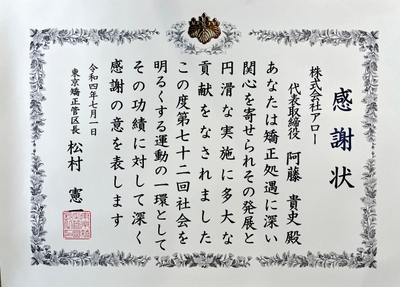 感謝状
株式会社アロー
代表取締役 阿藤貴史殿
あなたは矯正処遇に深い
関心を寄せられその発展と
円滑な実施に多大な
貢献をなされました
この度第七十二回社会を
明るくする運動の一環として
その功績に対して深く
感謝の意を表します
令和四年七月一日
東京矯正管区長 松村憲